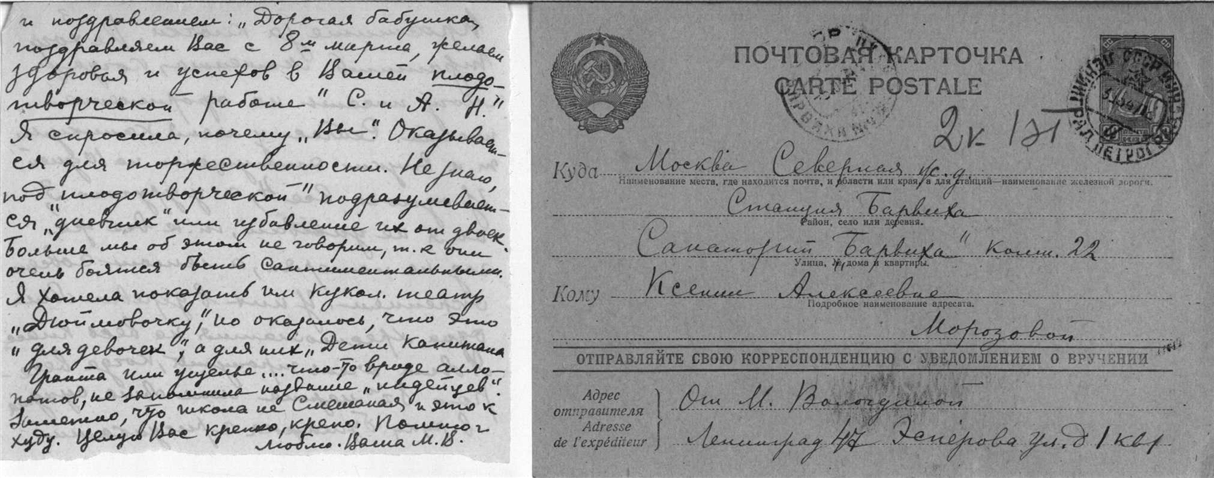 и поздравлением: „Дорогая бабушка,
поздравляем Вас с 8м марта, желаем
здоровья и успехов в Вашей плодо-
творческой работе" С. и А. Н."
Я спросила, почему „Вы". Оказывает-
ся для торжественности. Не знаю,
под плодотворческой" подразумевает-
ся „дневник" или избавление их от двоек.
Больше мы об этом не говорим, т.к они
очень боятся быть сантиментальными.
Я хотела показать им кукол. театр
„Дюймовочку", но оказалось, что это
„для девочек", а для них „Дети капитана
Гранта или ущелье.... что-то вроде алло-
патов, не запомнила название „индейцев".
Заметно, что школа не смешаная и это к
худу. Целую Вас крепко, крепо.
Люблю. Ваша М. В.
ПОЧТОВАЯ КАРТОЧКА
CARTE POSTALE
2к 1эт
Куда Москва Северная ж.д.
Наименование места, где находится почта, и области или края, а для станций—наименование железной дороги.
Станция Барвиха
Район, село или деревня.
Санаторий „Барвиха" комт. 22
Улица, № дома и квартиры.
Кому Ксении Алексеевне
Подробное наименование адресата.
Морозовой
ОТПРАВЛЯЙТЕ СВОЮ КОРРЕСПОНДЕНЦИЮ С УВЕДОМЛЕНИЕМ О ВРУЧЕНИИ
Адрес отправителя
Adresse de l'expéditeur
От М. Вологдиной
Ленинград 47 Эсперова ул. д 1 кв 1